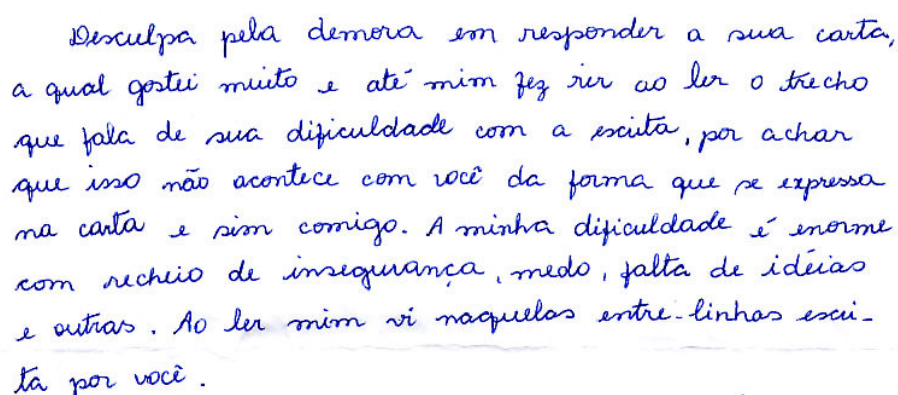 Desculpa pela demora em responder a sua carta,
a qual gostei muito e até mim fez rir ao ler o trecho
que fala de sua dificuldade com a escrita, por achar
que isso não acontece com você da forma que se expressa
na carta e sim comigo. A minha dificuldade é enorme
com recheio de insegurança, medo, falta de idéias
e outras. Ao ler mim vi naquelas entre-linhas escri-
ta por você.